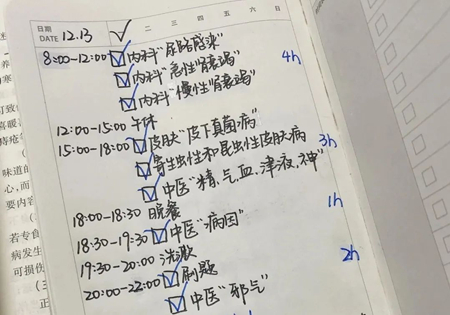 日期 DATE 12.13 二 三 四 五 六 日
8:00-12:00 内科"尿路感染"
内科"急性肾衰竭" 4h
内科"慢性肾衰竭"
12:00-15:00 午休
15:00-18:00 皮肤"皮下真菌病"
寄生虫性和昆虫性皮肤病 3h
中医"精、气、血、津液、神"
18:00-18:30 晚餐
18:30-19:30 中医"病因" 1h
19:30-20:00 洗漱
20:00-22:00 刷题 2h
中医"邪气"
味道的
心,而
要内容
若专食
病发生
可损伤